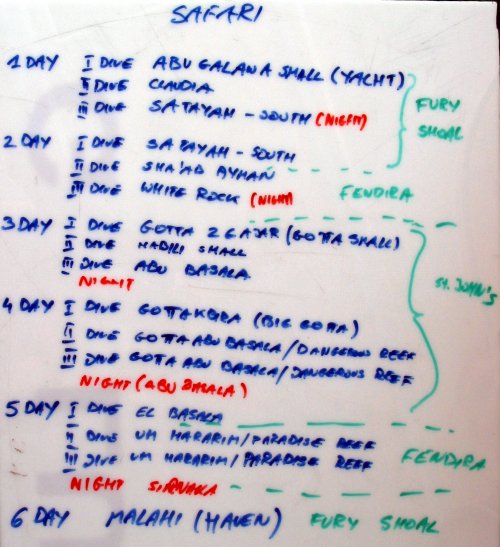 SAFARI
1 DAY I DIVE ABU GALAWA SMALL (YACHT)
II DIVE CLAUDIA
III DIVE SATAYAH - SOUTH (NIGHT)
FURY SHOAL
2 DAY I DIVE SATAYAH - SOUTH
II DIVE SHA'AB AYMAN
III DIVE WHITE ROCK (NIGHT) FENDIRA
3 DAY I DIVE GOTTA (GOTTA SMALL)
II DIVE HABILI SMALL
III DIVE ABU BASALA
NIGHT
ST. JOHN'S
4 DAY I DIVE GOTTA KBIRA (BIG GOTTA)
II DIVE GOTTA ABU BASALA/DANGEROUS REEF
III DIVE GOTTA ABU BASALA/DANGEROUS REEF
NIGHT (ABU BASALA)
5 DAY I DIVE EL BASALA
II DIVE UM HARARIM/PARADISE REEF
III DIVE UM HARARIM/PARADISE REEF FENDIRA
NIGHT SIRNAKA
6 DAY MALAHI (HAVEN) FURY SHOAL